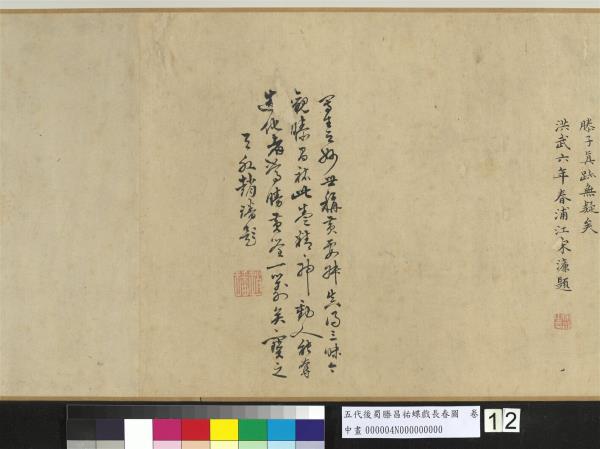 滕子真跡無疑矣
洪武六年春浦江宋濂題
寫生之妙世稱黃要叔真得三昧今
觀滕昌祐此卷精神動人能奪
造化者為勝黃筌一籌矣寶之
天水趙題
五代後蜀滕昌祐蝶戲長春圖 卷
中畫 000004N000000000
12